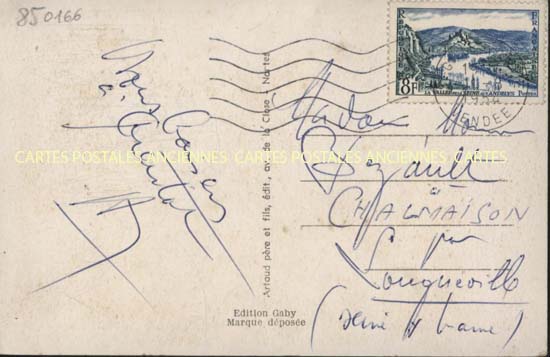 850166
Bons baisers
à
RÉPUBLIQUE FRANÇAISE
8F
VALLÉE DE LA SEINE AUX ANDELYS
VENDEE
Madame
Bézault
à
CHALMAISON
par
Longueville
(Seine et Marne)
CARTES POSTALES ANCIENNES CARTES POSTALES ANCIENNES CARTES POSTALES ANCIENNES
Artaud père et fils, édit., av. de la Close - Nantes
Edition Gaby
Marque déposée